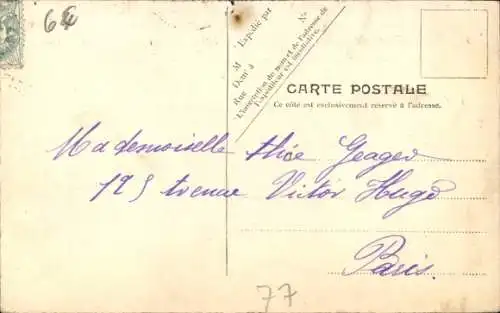 64
Expédié par
M
Dem<sup>t</sup> à
Rue N°
L'inscription du nom et de l'adresse de
l'expéditeur est facultative.
CARTE POSTALE
Ce côté est exclusivement réservé à l'adresse.
Mademoiselle Alice Geager
125 Avenue Victor Hugo
Paris.
77